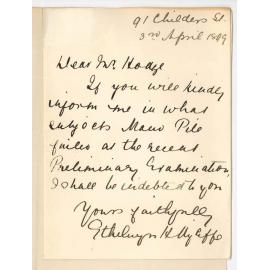 91 Childers St.
3rd April 1899
Dear Mr. Hodge
If you will kindly
inform me in what
subjects Maud Pile
failed at the recent
Preliminary Examination,
I shall be indebted to you
Yours faithfully
Ethelwyn H